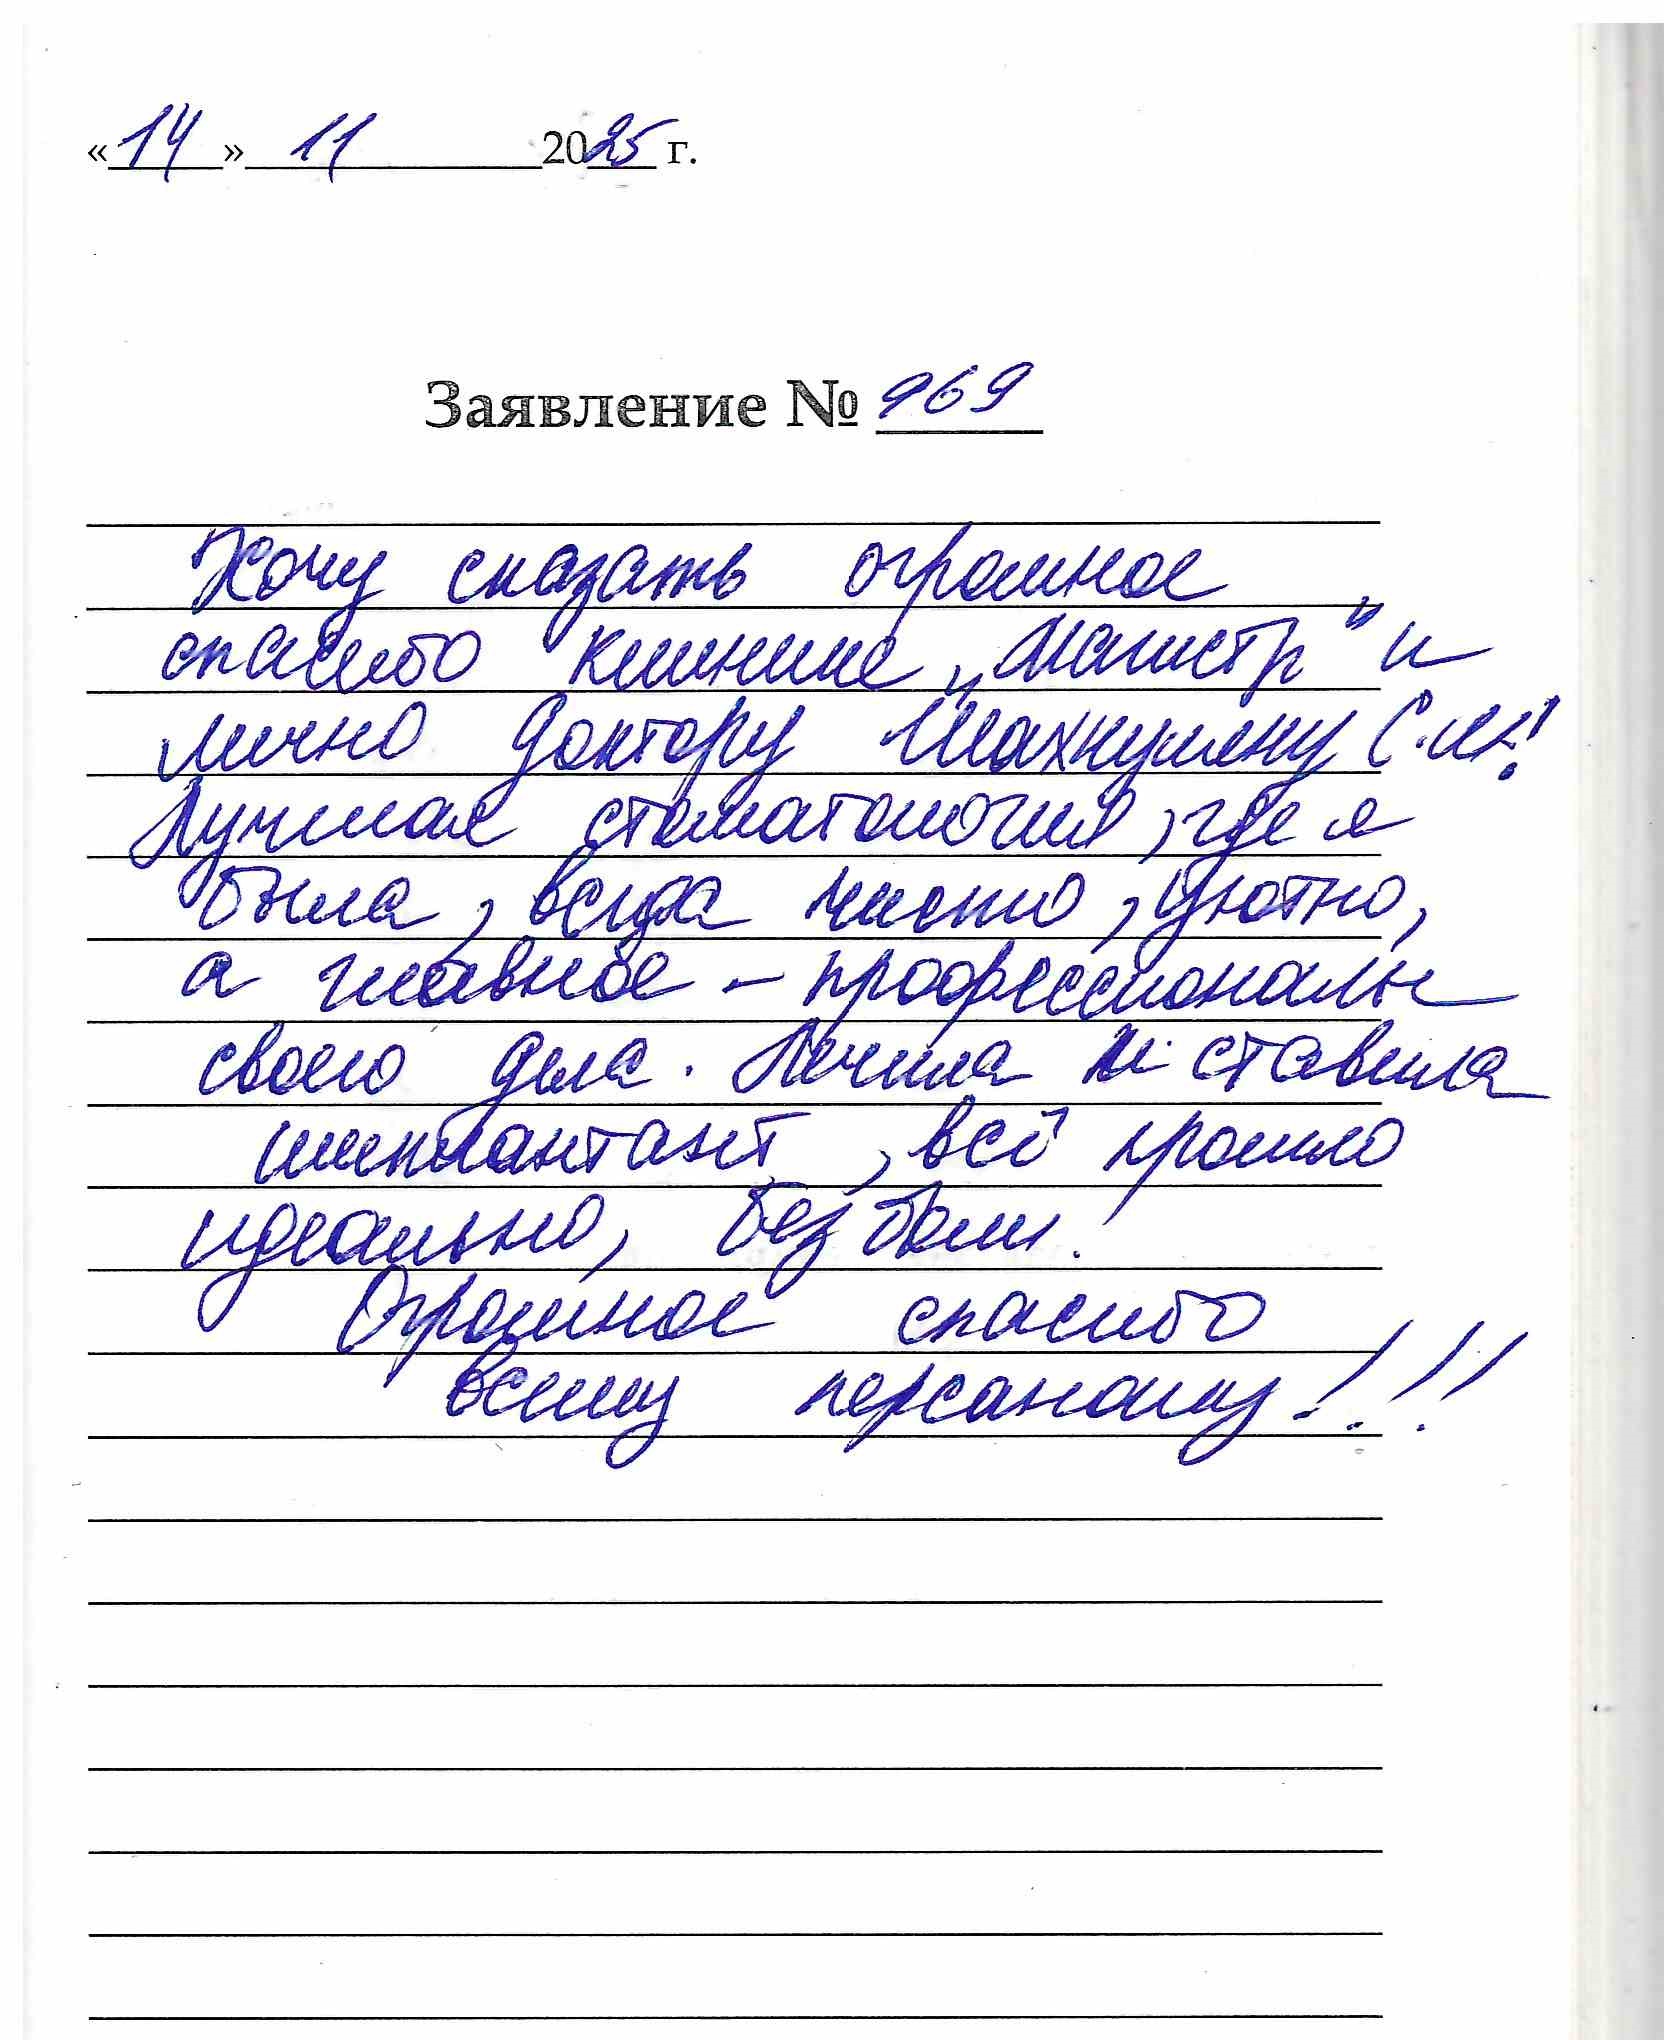 «14» 11 2025 г.
Заявление № 969
Хочу сказать огромное
спасибо клинике „Магистр" и
лично доктору Шахкуляну С.К!
Лучшая стоматология, где я
была, всегда чисто, уютно,
а главное – профессионалы
своего дела. Лечила и ставила
имплантант, всё прошло
идеально, без боли!
Огромное спасибо
всему персоналу!!!